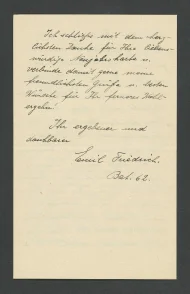 Ich schließe mit dem herz-
lichsten Danke für Ihre liebens-
würdige Neujahrskarte u.
verbinde damit gerne meine
freundlichsten Grüße u. besten
Wünsche für Ihr ferneres Wohl-
ergehn!
Ihr ergebener und
dankbarer
Emil Friedrich.
Bat. 62.